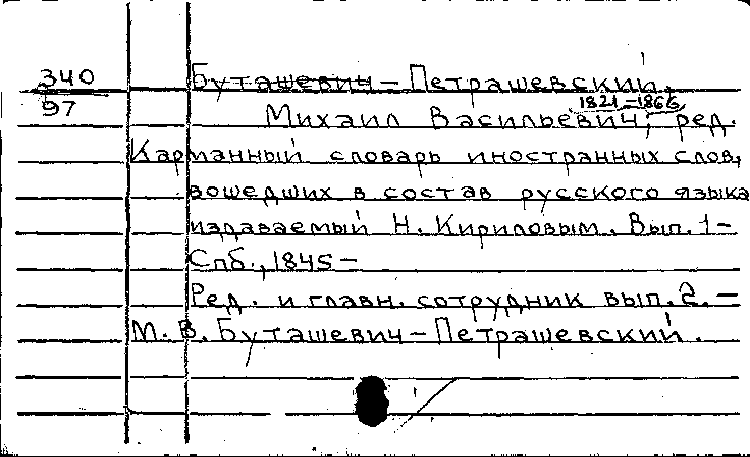 340
97
Буташевич-Петрашевский,
1821-1866
Михаил Васильевич, ред.
Карманный словарь иностранных слов,
вошедших в состав русского языка
издаваемый Н. Кириловым. Вып. 1-
Спб., 1845-
Ред. и главн. сотрудник вып. 2. -
М. В. Буташевич-Петрашевский.